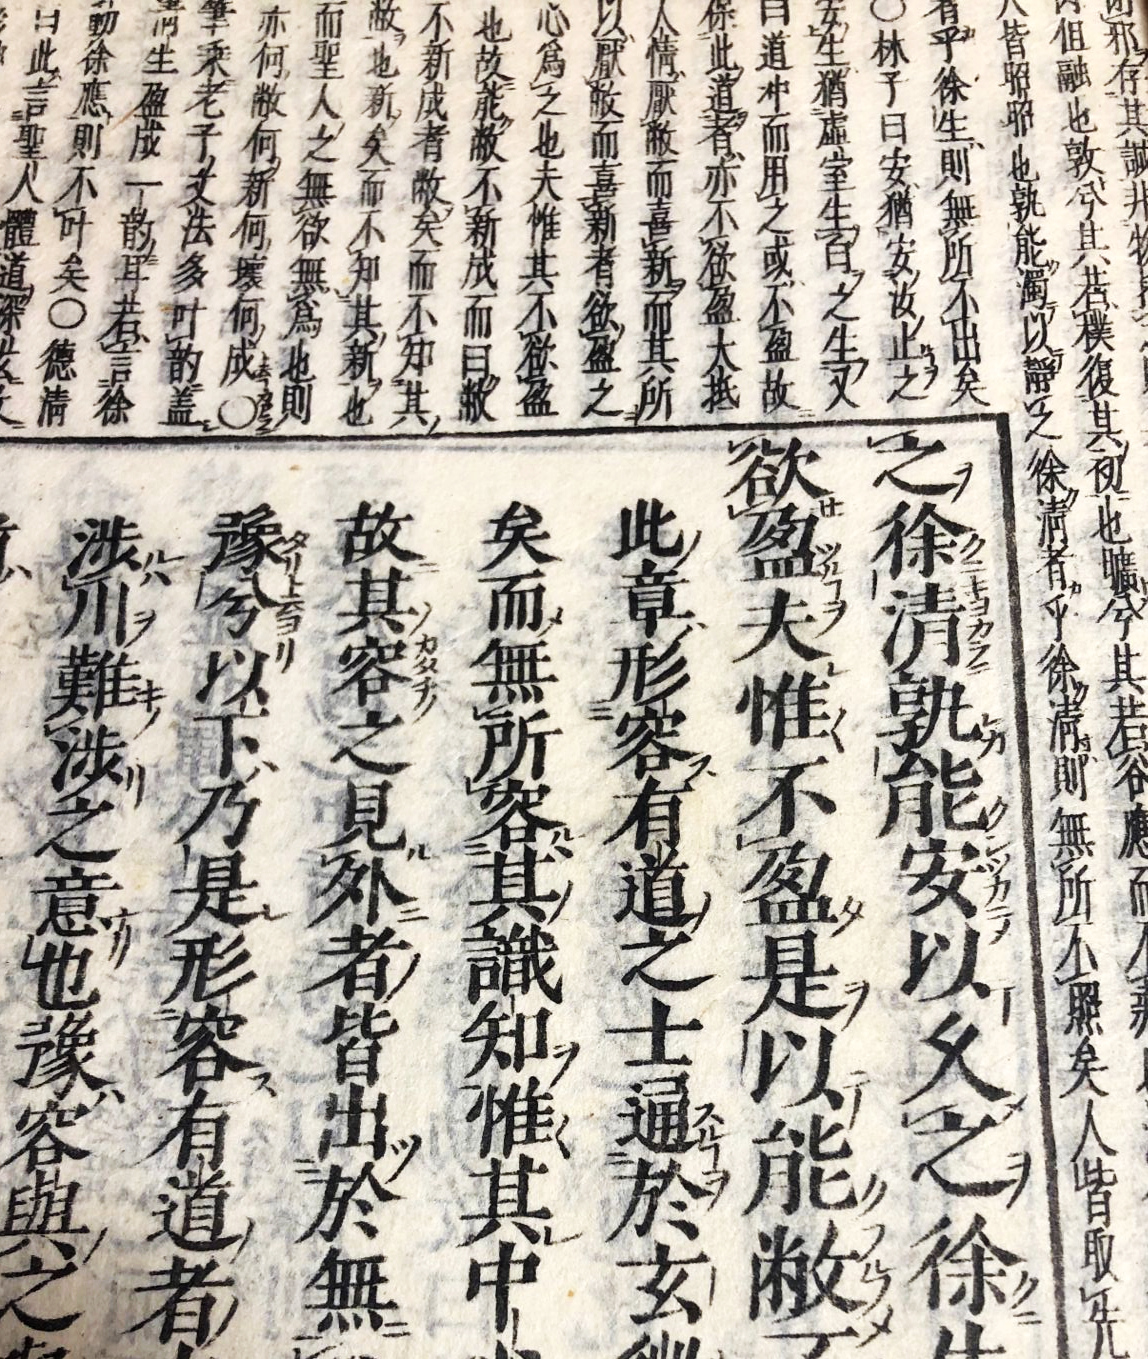 其誠非物
但融也敦兮其若樸復其初也曠兮其若谷應而
人皆昭昭也孰能濁以靜之徐清者乎徐清則無所不照矣人皆取先
者乎徐生則無所不出矣
〇林子曰安猶安汝止之
安生猶虛室生白之生又
曰道冲而用之或不盈故
保此道者亦不欲盈大抵
人情厭敝而喜新而其所
以厭敝而喜新者欲盈之
心爲之也夫惟其不欲盈
也故能敝不新成而曰敝
不新成者敝矣而不知其
敝也新矣而不知其新也
而聖人之無欲無爲也則
亦何敝何新何壞何成〇
筆乘老子文法多叶韵盖
清生盈成一韵耳若言徐
動徐應則不叶矣〇德清
曰此言聖人體道深玄
之徐清孰能安以久之徐生
欲盈夫惟不盈是以能敝不
此章形容有道之士逼於玄
矣而無所容其識知惟其中
故其容之見外者皆出於無
豫兮以下乃是形容有道者
涉川難涉之意也豫容與之